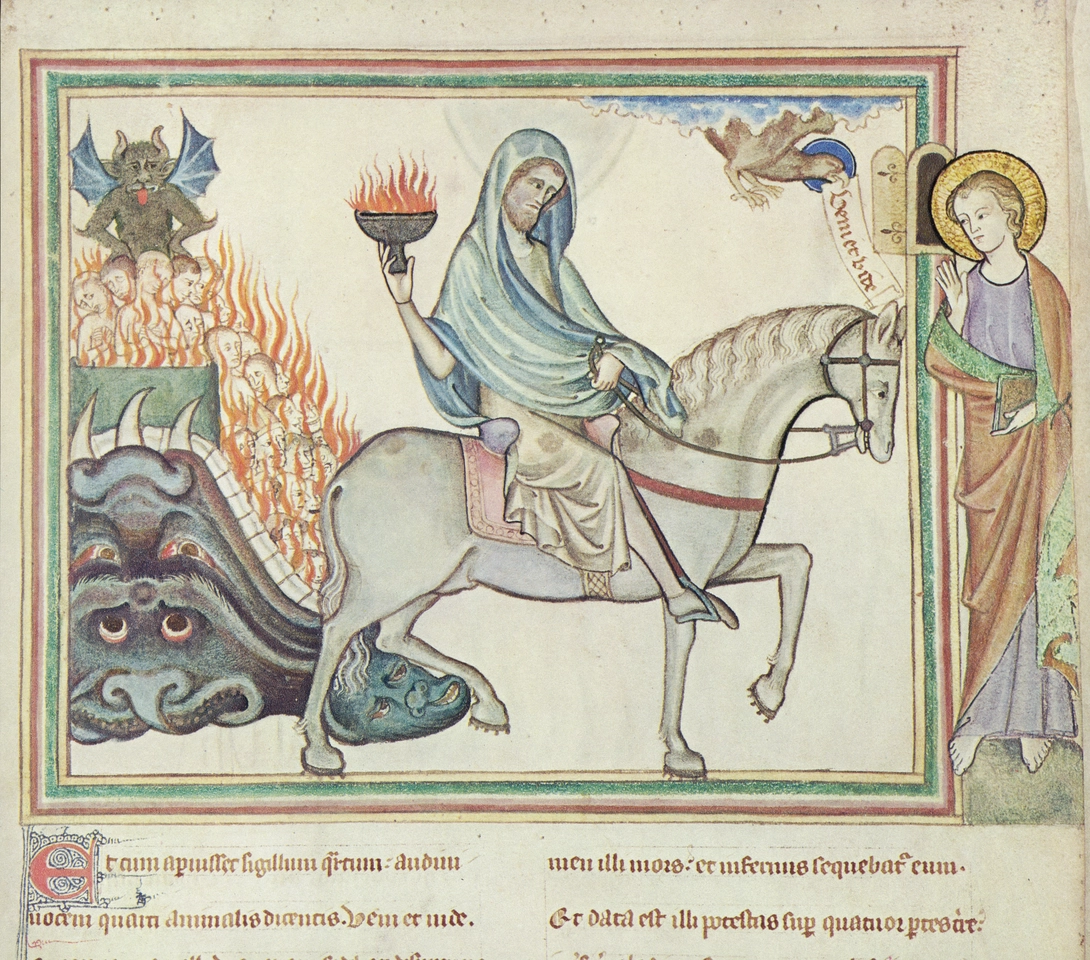 Veni et vide
Et cum apuisset sigillum qrtum: audiui
uocem quarti animalis dicentis. Veni et uide.
men illi mors: et infernus sequebat eum.
Et data est illi ptestas sup quatuor ptes tre: